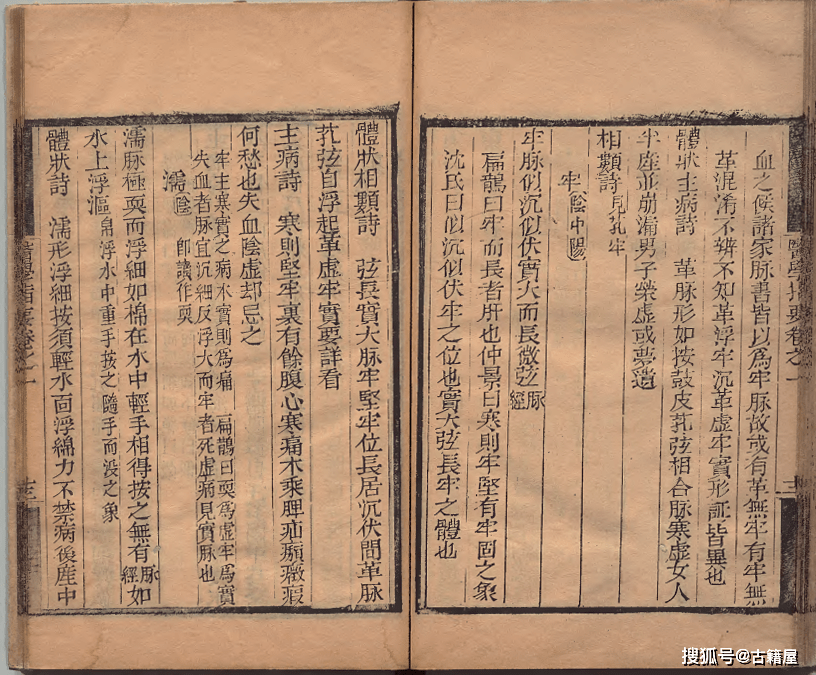 血之候諸家脉書皆以為牢脉故或有革無牢有牢無
革混淆不辨不知革浮牢沉革虛牢實形証皆異也
體狀主病詩 革脉形如按鼓皮芤弦相合脉寒虛女人
半產並崩漏男子榮虛或夢遺
相類詩見芤牢
牢陰中陽
牢脉似沉似伏實大而長微弦脉經
扁鵲曰牢而長者肝也仲景曰寒則牢堅有牢固之象
沈氏曰似沉似伏牢之位也實大弦長牢之體也
醫學指要卷之一
體狀相類詩 弦長實大脉牢堅牢位長居沉伏間革脉
芤弦自浮起革虛牢實要詳看
主病詩 寒則堅牢裏有餘腹心寒痛木乘脾疝㿗癥瘕
何愁也失血陰虛却忌之
牢主寒實之病木實則為痛 扁鵲曰耎為虛牢為實
失血者脉宜沉細反浮大而牢者死虛病見實脉也
濡陰 即讀作耎
濡脉極耎而浮細如棉在水中輕手相得按之無有脉經如
水上浮漚帛浮水中重手按之隨手而没之象
體狀詩 濡形浮細按須輕水面浮綿力不禁病後產中
醫學指要卷之一
十三
搜狐号@古籍屋